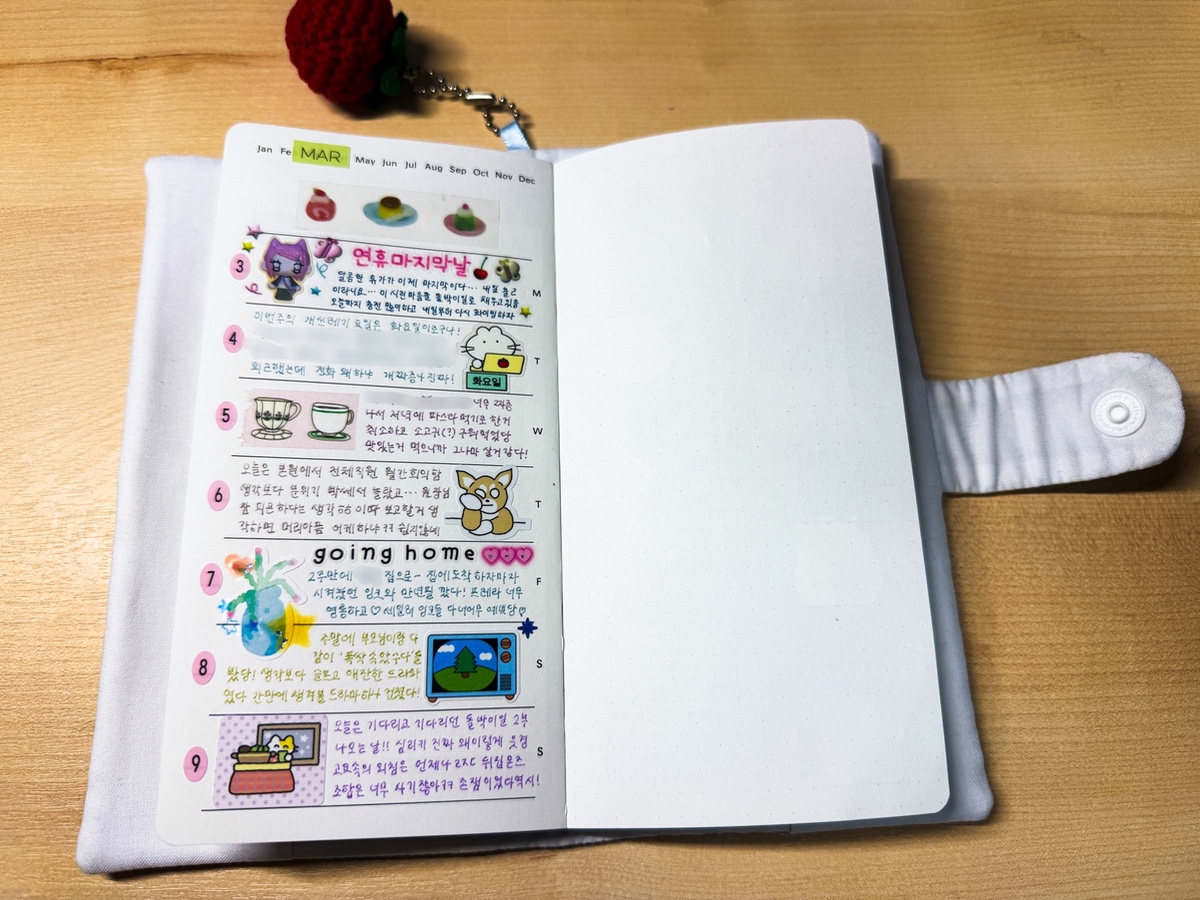 Jan Fe MAR May Jun Jul Aug Sep Oct Nov Dec
3
연휴마지막날
달콤한 휴가가 이제 마지막이다... 내일 출근
이라니요... 이 시린마음을 돌박이일로 채우고있음
오늘까지 충전 많이하고 내일부터 다시 화이팅하자
M
4
이번주의 개쓰레기 요일은 화요일이로구나!
퇴근했는데 전화 왜하냐 개짜증나진짜!
화요일
T
5
너무 짜증
나서 저녁에 파스타먹기로 한거
취소하고 소고기(?)구워먹었당
맛있는거 먹으니까 그나마 살거같다!
W
6
오늘은 본원에서 전체직원 월간회의함
생각보다 분위기 빡세서 놀랐고... 원장님
참 피곤하다는 생각 이따 보고할거 생
각하면 머리아픔 어케하냐ㅋㅋ 쉽지않네
T
going home
7
2주만에 집으로~ 집에도착하자마자
시켜놨던 잉크와 만년필 깠다! 프레라 너무
영롱하고♡ 세일러 잉크들 다너어무 예쁘당♡
F
8
주말에 부모님이랑 다
같이 '폭싹속았수다'를
봤당! 생각보다 슬프고 애잔한 드라마
였다 간만에 챙겨볼드라마하나 건졌다!
S
9
오늘은 기다리고 기다리던 돌박이일 2부
나오는날!! 심리키 진짜 왜이렇게 웃겨
고요속의 외침은 언제나 라즈 뒤집는즈
조합은 너무 사기잖아ㅋㅋ 존잼이었다역시!
S